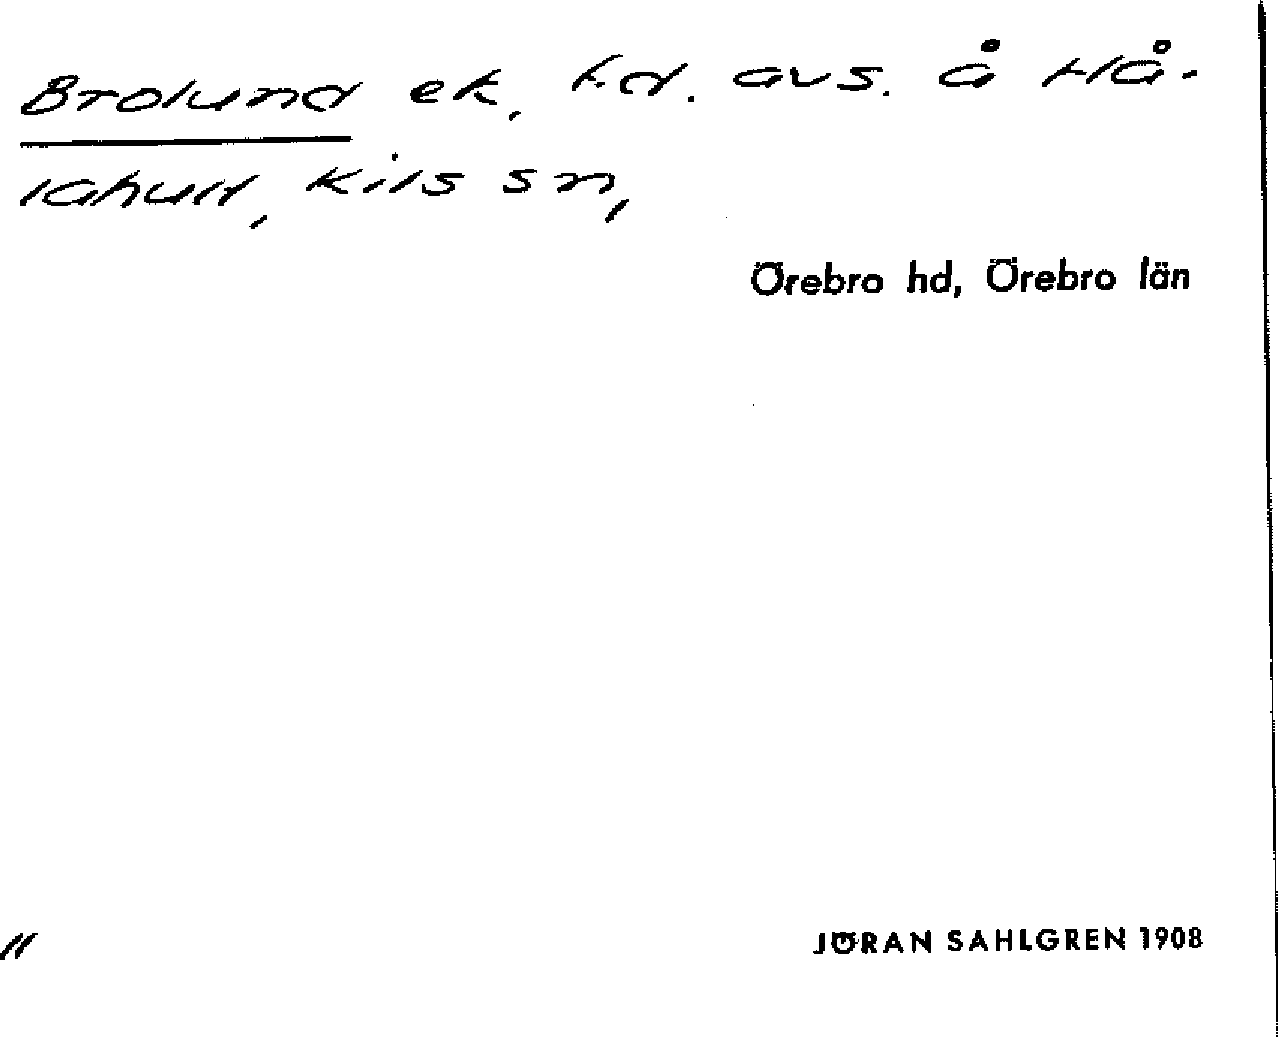 Brolund ek, f.d. avs. å Hå-
lahult, Kils sn,
Örebro hd, Örebro län
JÖRAN SAHLGREN 1908